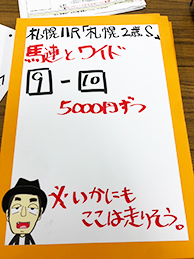 札幌11R「札幌2歳S」
馬連とワイド
9-10
5000円ずつ
※いかにも
ここは走りそう。